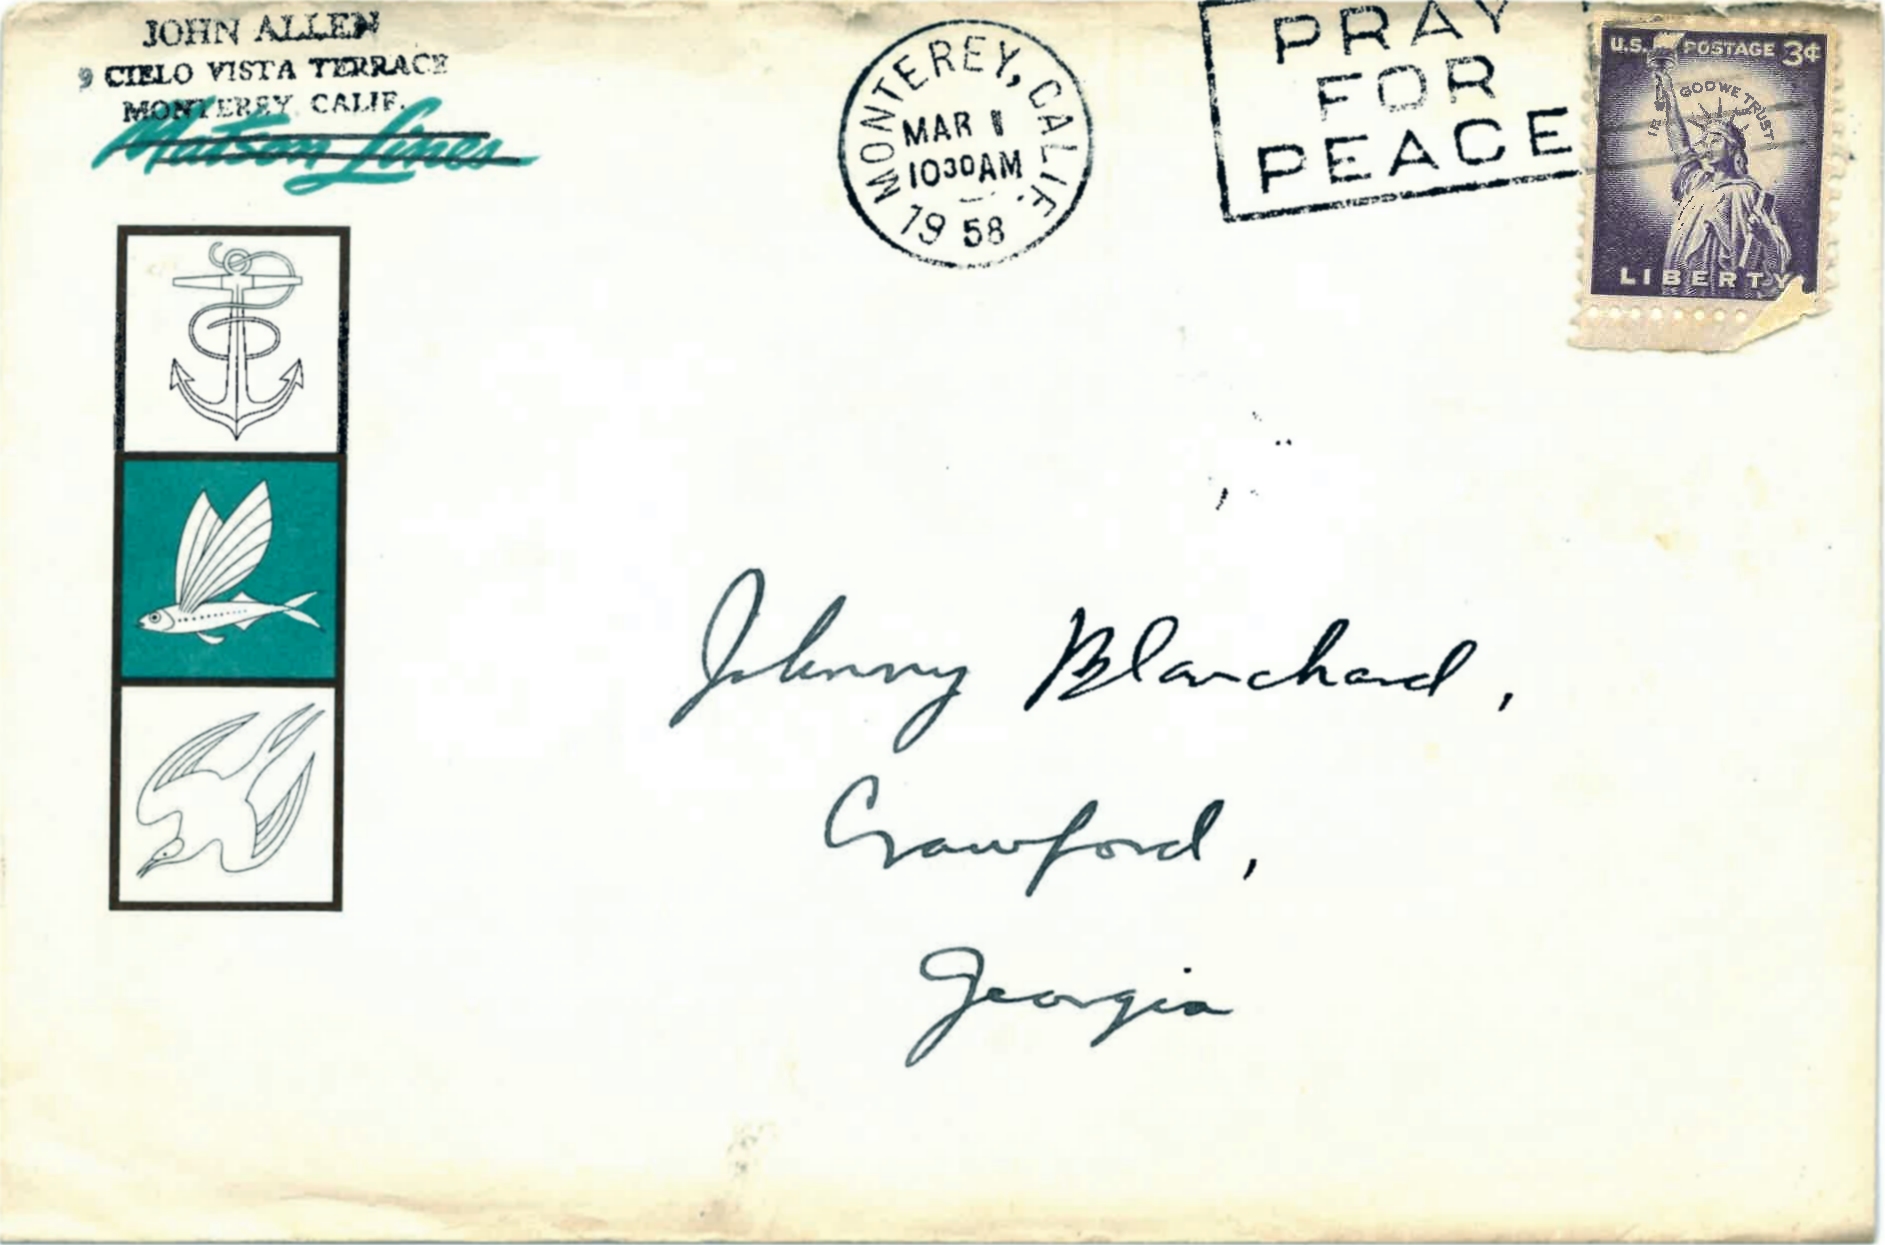 JOHN ALLEN
9 CIELO VISTA TERRACE
MONTEREY, CALIF.
Matson Lines
MONTEREY, CALIF.
MAR 1
1030AM
1958
PRAY
FOR
PEACE
U.S. POSTAGE 3¢
IN GOD WE TRUST
LIBERTY
Johnny Blanchard,
Crawford,
Georgia